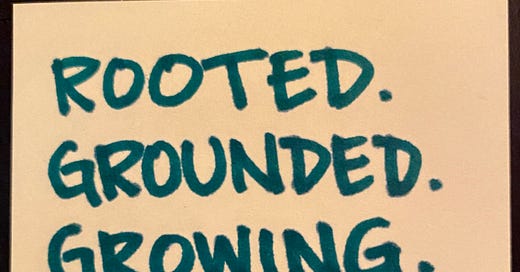 ROOTED.
GROUNDED.
GROWING.